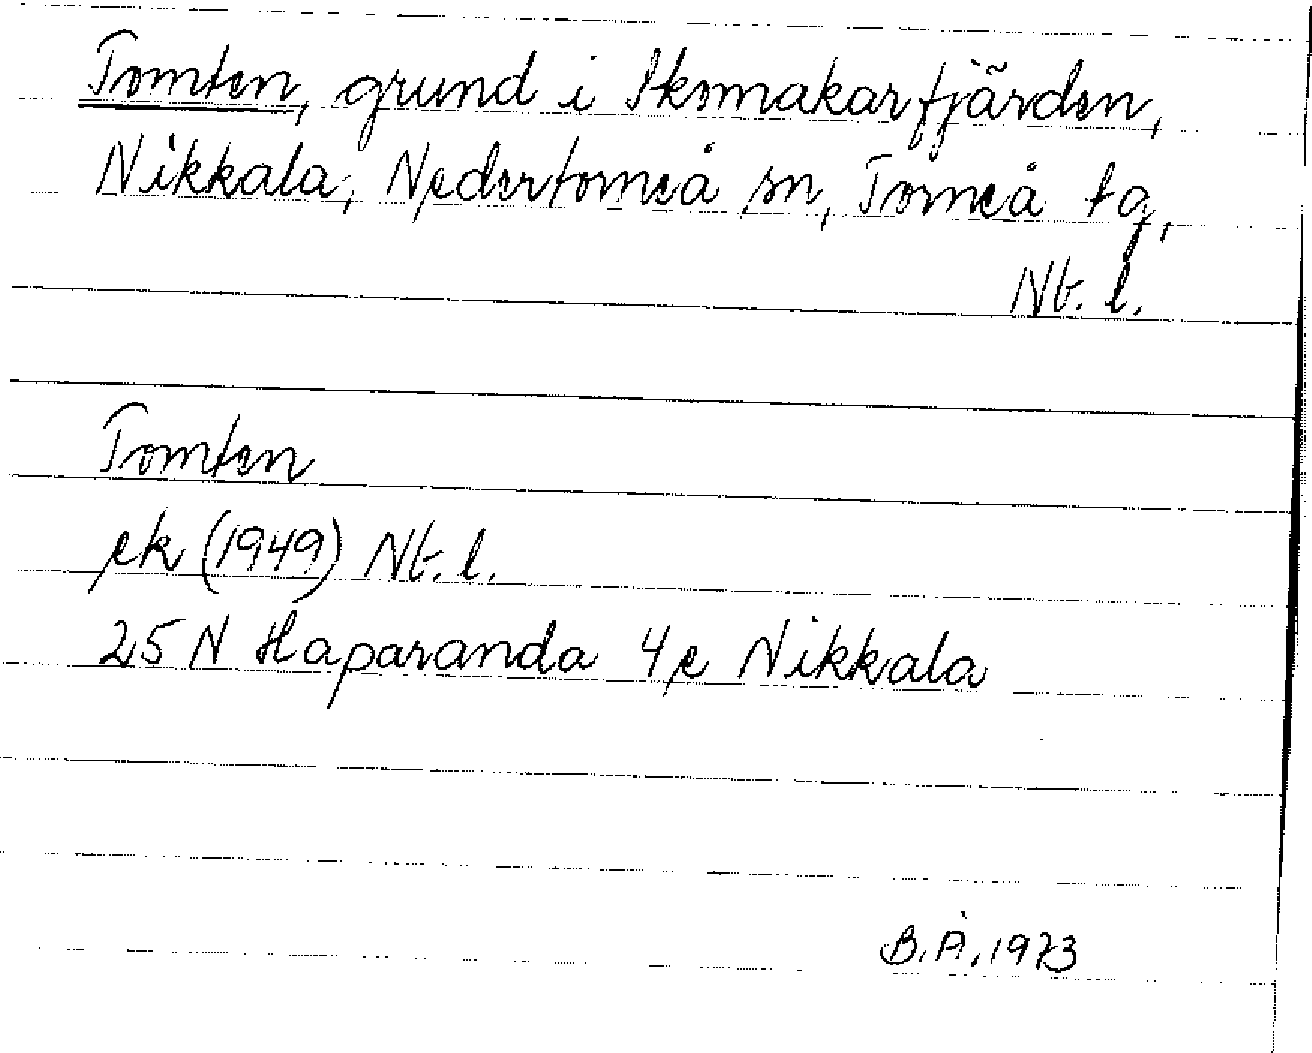 Tomten, grund i Skomakarfjärden,
Nikkala, Nedertorneå sn, Torneå tg,
Nb. l.
Tomten
ek (1949) Nb. l.
25 N Haparanda 4e Nikkala
B.Å. 1973